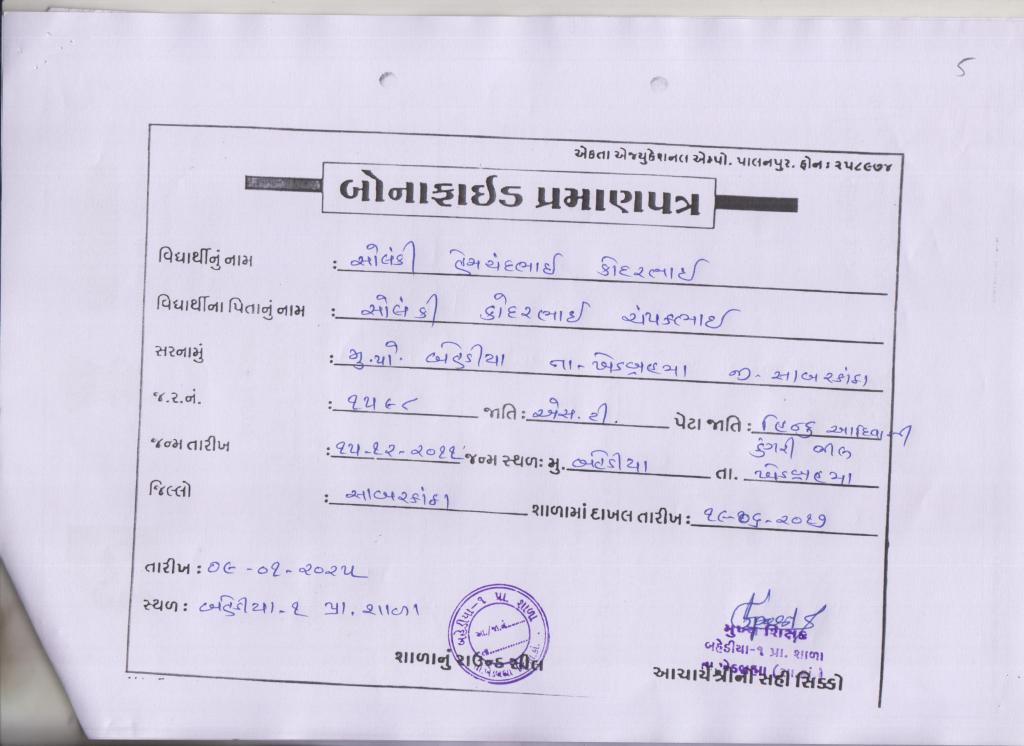 5
એકતા એજ્યુકેશનલ એમ્પો. પાલનપુર. ફોન : ૨૫૮૯૭૪
બોનાફાઈડ પ્રમાણપત્ર
વિદ્યાર્થીનું નામ : સોલંકી હેમચંદભાઈ કોદરભાઈ
વિદ્યાર્થીના પિતાનું નામ : સોલંકી કોદરભાઈ ચંપકભાઈ
સરનામું : મુ.પો. બહેડીયા તા- ખેડબ્રહ્મા જી- સાબરકાંઠા
જ.ર.નં. : ૧૫૯૮ જાતિ : એસ.ટી. પેટા જાતિ : હિન્દુ આદિવાસી
ડુંગરી ભીલ
જન્મ તારીખ : ૧૫-૧૨-૨૦૧૧ જન્મ સ્થળ: મુ. બહેડીયા તા. ખેડબ્રહ્મા
જિલ્લો : સાબરકાંઠા શાળામાં દાખલ તારીખ : ૧૯-૦૬-૨૦૧૭
તારીખ : ૦૯-૦૧-૨૦૨૫
સ્થળ : બહેડીયા-૧ પ્રા. શાળા
બહેડીયા-૧ પ્રા. શાળા
આ./જા.નં.
તા.
શાળાનું રાઉન્ડ સીલ
મુખ્ય શિક્ષક
બહેડીયા-૧ પ્રા. શાળા
તા. ખેડબ્રહ્મા (સા.કાં.)
આચાર્યશ્રીની સહી સિક્કો